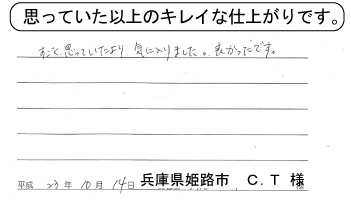 思っていた以上のキレイな仕上がりです。
思っていたより 気に入りました。良かったです。
平成 23 年 10 月 14 日 兵庫県姫路市 C.T 様